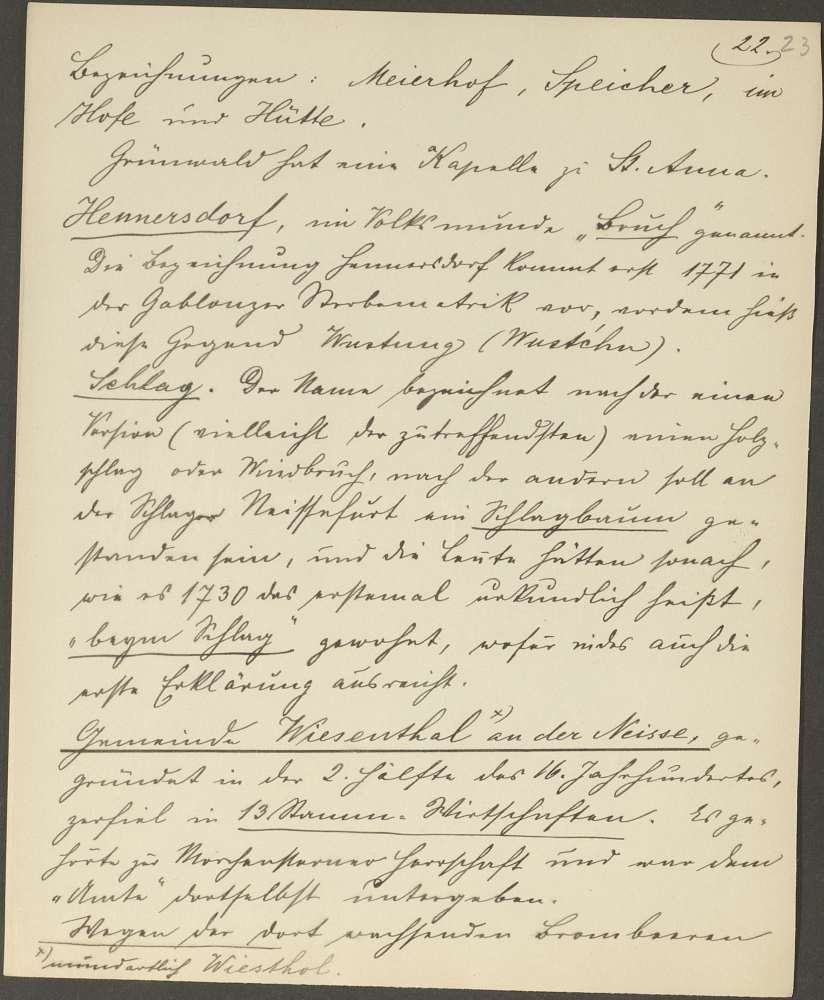 22. 23
Bezeichnungen: Meierhof, Speicher, im
Hofe und Hütte.
Grünwald hat eine Kapelle zu St. Anna.
Hennersdorf, im Volksmunde „Bruch" genannt.
Die Bezeichnung Hennersdorf kommt erst 1771 in
der Gablonzer Sterbematrik vor, vordem hieß
diese Gegend Wustung (Wust'chn).
Schlag. Der Name bezeichnet nach der einen
Version (vielleicht der zutreffendsten) einen Holz-
schlag oder Windbruch, nach der andern soll an
der Schlager Neissefurt ein Schlagbaum ge-
standen sein, und die Leute hätten sonach,
wie es 1730 das erstemal urkundlich heißt,
„beym Schlag" gewohnt, wofür indes auch die
erste Erklärung ausreicht.
Gemeinde Wiesenthal x) an der Neisse, ge-
gründet in der 2. Hälfte des 16. Jahrhundertes,
zerfiel in 13 Stamm-Wirtschaften. Es ge-
hörte zur Morchensterner Herrschaft und war dem
„Amte" dortselbst untergeben.
Wegen der dort wachsenden Brombeeren
x) mundartlich Wiesthol.